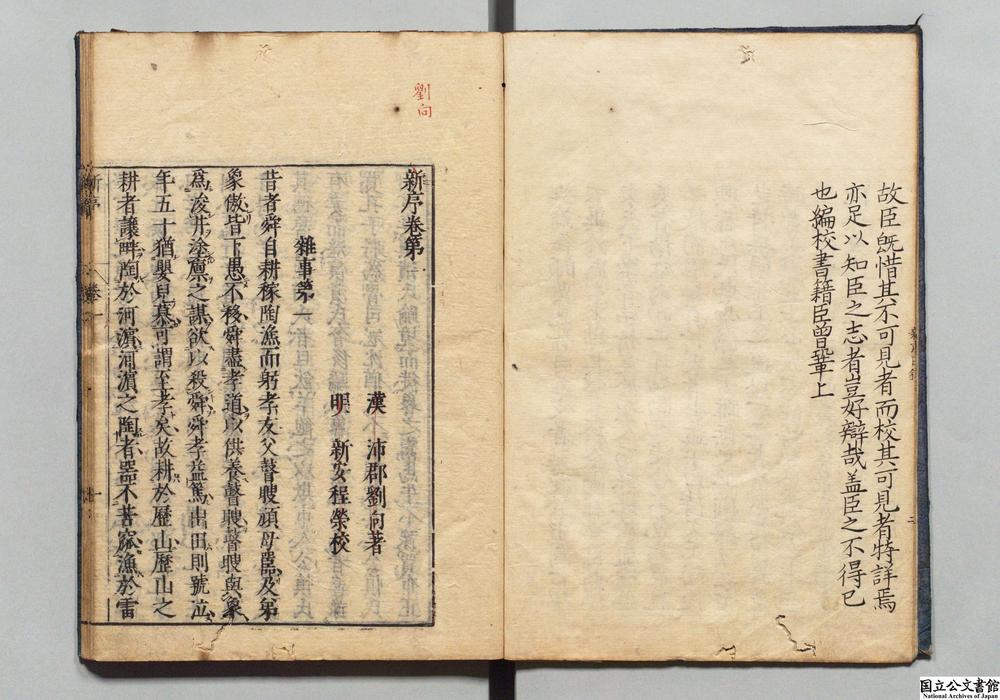 故臣旣惜其不可見者而校其可見者特詳焉
亦足以知臣之志者豈好辯哉盖臣之不得已
也編校書籍臣曾鞏上
劉向
新序卷第一
漢 沛郡劉向著
明 新安程榮校
雜事第一
昔者舜自耕稼陶漁而躬孝友父瞽瞍頑母嚚及弟
象傲皆下愚不移舜盡孝道以供養瞽瞍瞽瞍與象
爲浚井塗廩之謀欲以殺舜舜孝益篤出田則號泣
年五十猶嬰兒慕可謂至孝矣故耕於歷山歷山之
耕者讓畔陶於河濵河濵之陶者器不苦窳漁於雷
新序
卷一
一
国立公文書館
National Archives of Japan